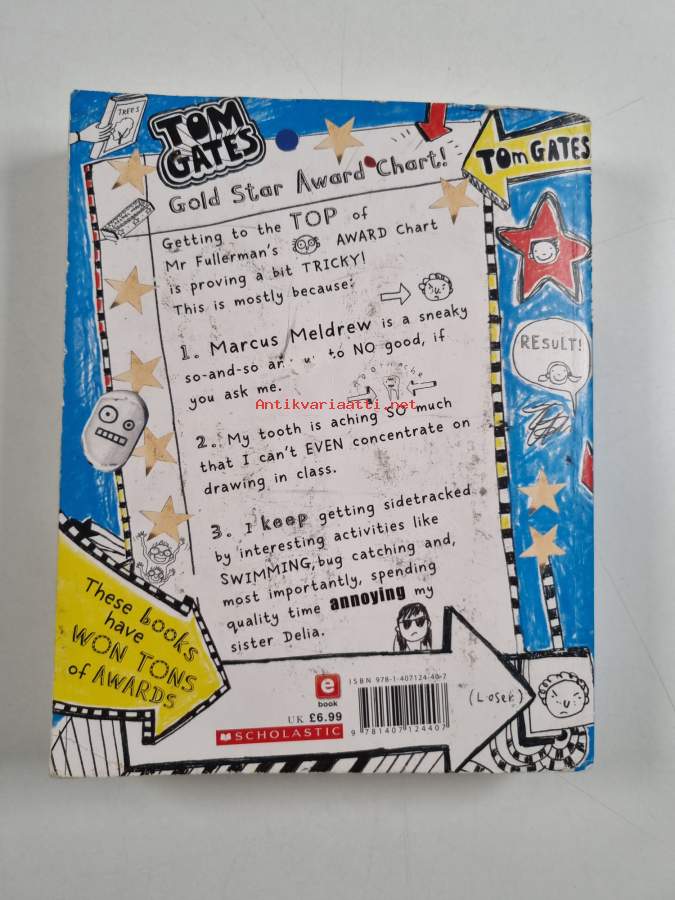 TREES
TOM
GATES
Gold Star Award Chart!
TOM GATES
Getting to the TOP of
Mr Fullerman's AWARD Chart
is proving a bit TRICKY!
This is mostly because:
RESULT!
1. Marcus Meldrew is a sneaky
so-and-so to NO good, if
you ask me.
Antikvariaatti.net
2. My tooth is aching SO much
that I can't EVEN concentrate on
drawing in class.
3. I keep getting sidetracked
by interesting activities like
SWIMMING, bug catching and,
most importantly, spending
quality time annoying my
sister Delia.
These books
have
WON TONS
of AWARDS
e
book
UK £6.99
SCHOLASTIC
ISBN 978-1-407124-40-7
9 781407 124407
(Loser)